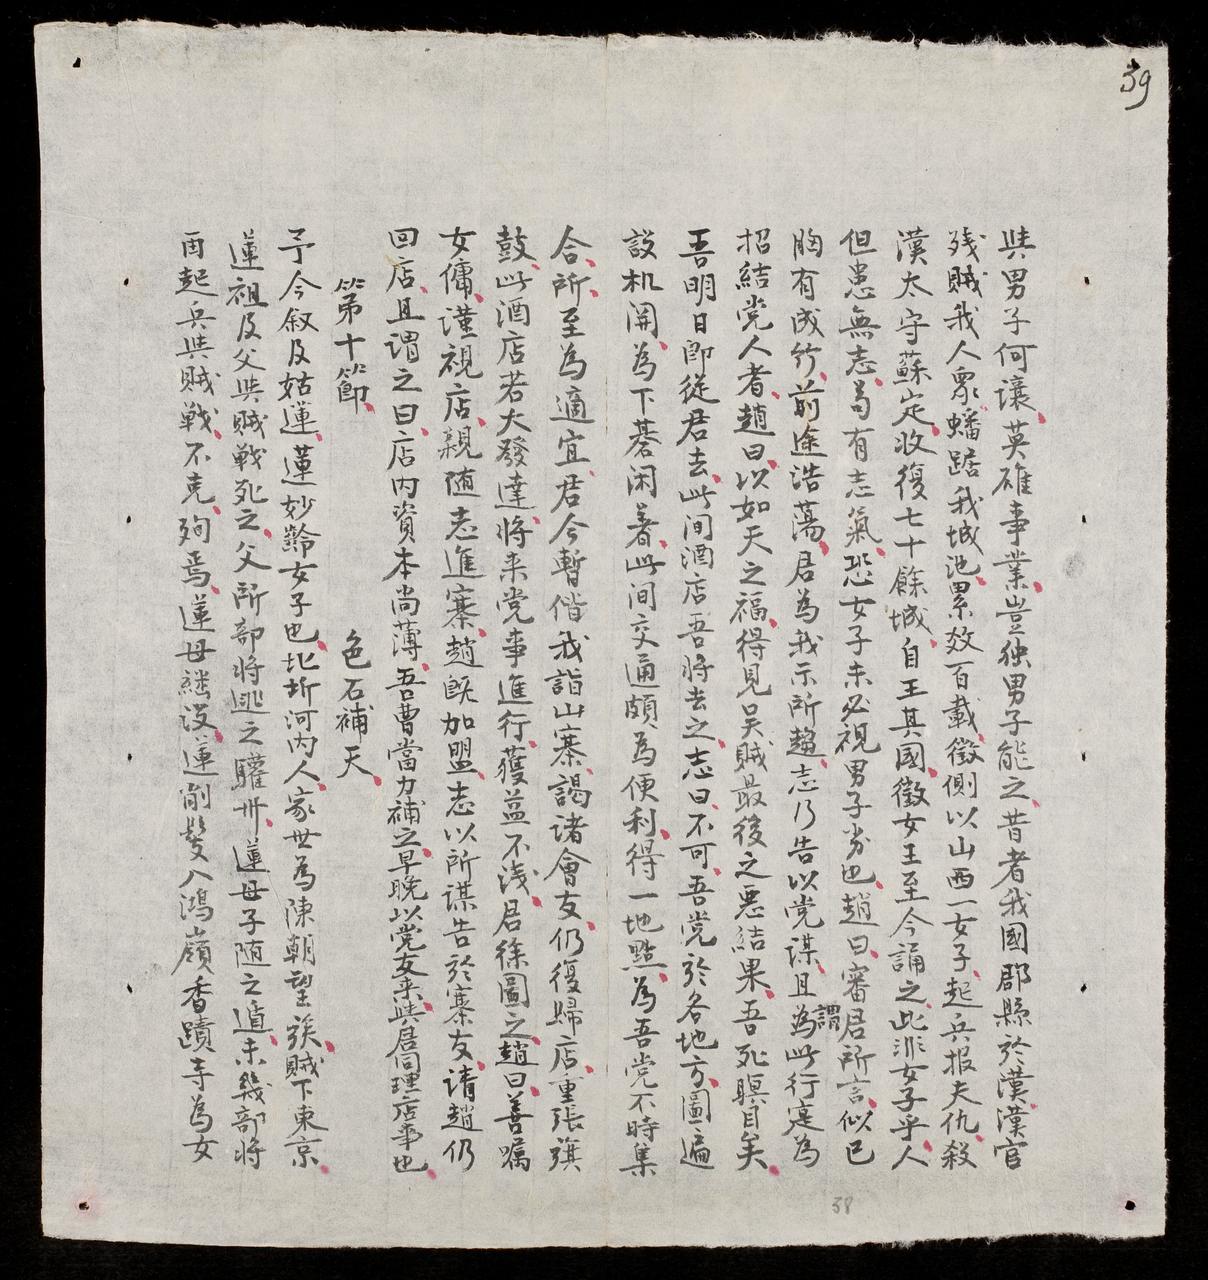 39
與男子何讓英雄事業豈独男子能之昔者我國郡縣於漢漢官
残賊我人眾蟠踞我城池累效百載徵側以山西一女子起兵报夫仇殺
漢太守蘇定收復七十餘城自王其國徵女王至今誦之此非女子乎人
但患無志苟有志氣恐女子未必視男子劣也趙曰審君所言似已
胸有成竹前途浩蕩君為我示所趨志乃告以党謀且謂為此行寔為
招結党人者趙曰以如天之福得見吴賊最後之悪結果吾死瞑目矣
吾明日即從君去此间酒店吾将去之志曰不可吾党於各地方圖遍
設机関為下碁闲著此间交通頗為便利得一地點為吾党不時集
合所至為適宜君今暫偕我詣山寨謁诸會友仍復歸店重張旗
鼓此酒店若大發達将来党事進行獲益不浅君徐圖之趙曰善嘱
女傭謹視店親随志進寨趙既加盟志以所謀告於寨友请趙仍
回店且謂之曰店内資本尚薄吾曹當力補之早晚以党友来與居同理店事也
第十節 色石補天
予今叙及姑蓮蓮妙齡女子也圻河内人家世為陳朝望族賊下東京
蓮祖及父與賊戦死之父所部将逃之驩州蓮母子随之遁未幾部将
酉起兵與賊戦不克殉焉蓮母継没蓮削髮入鴻嶺香蹟寺為女
38